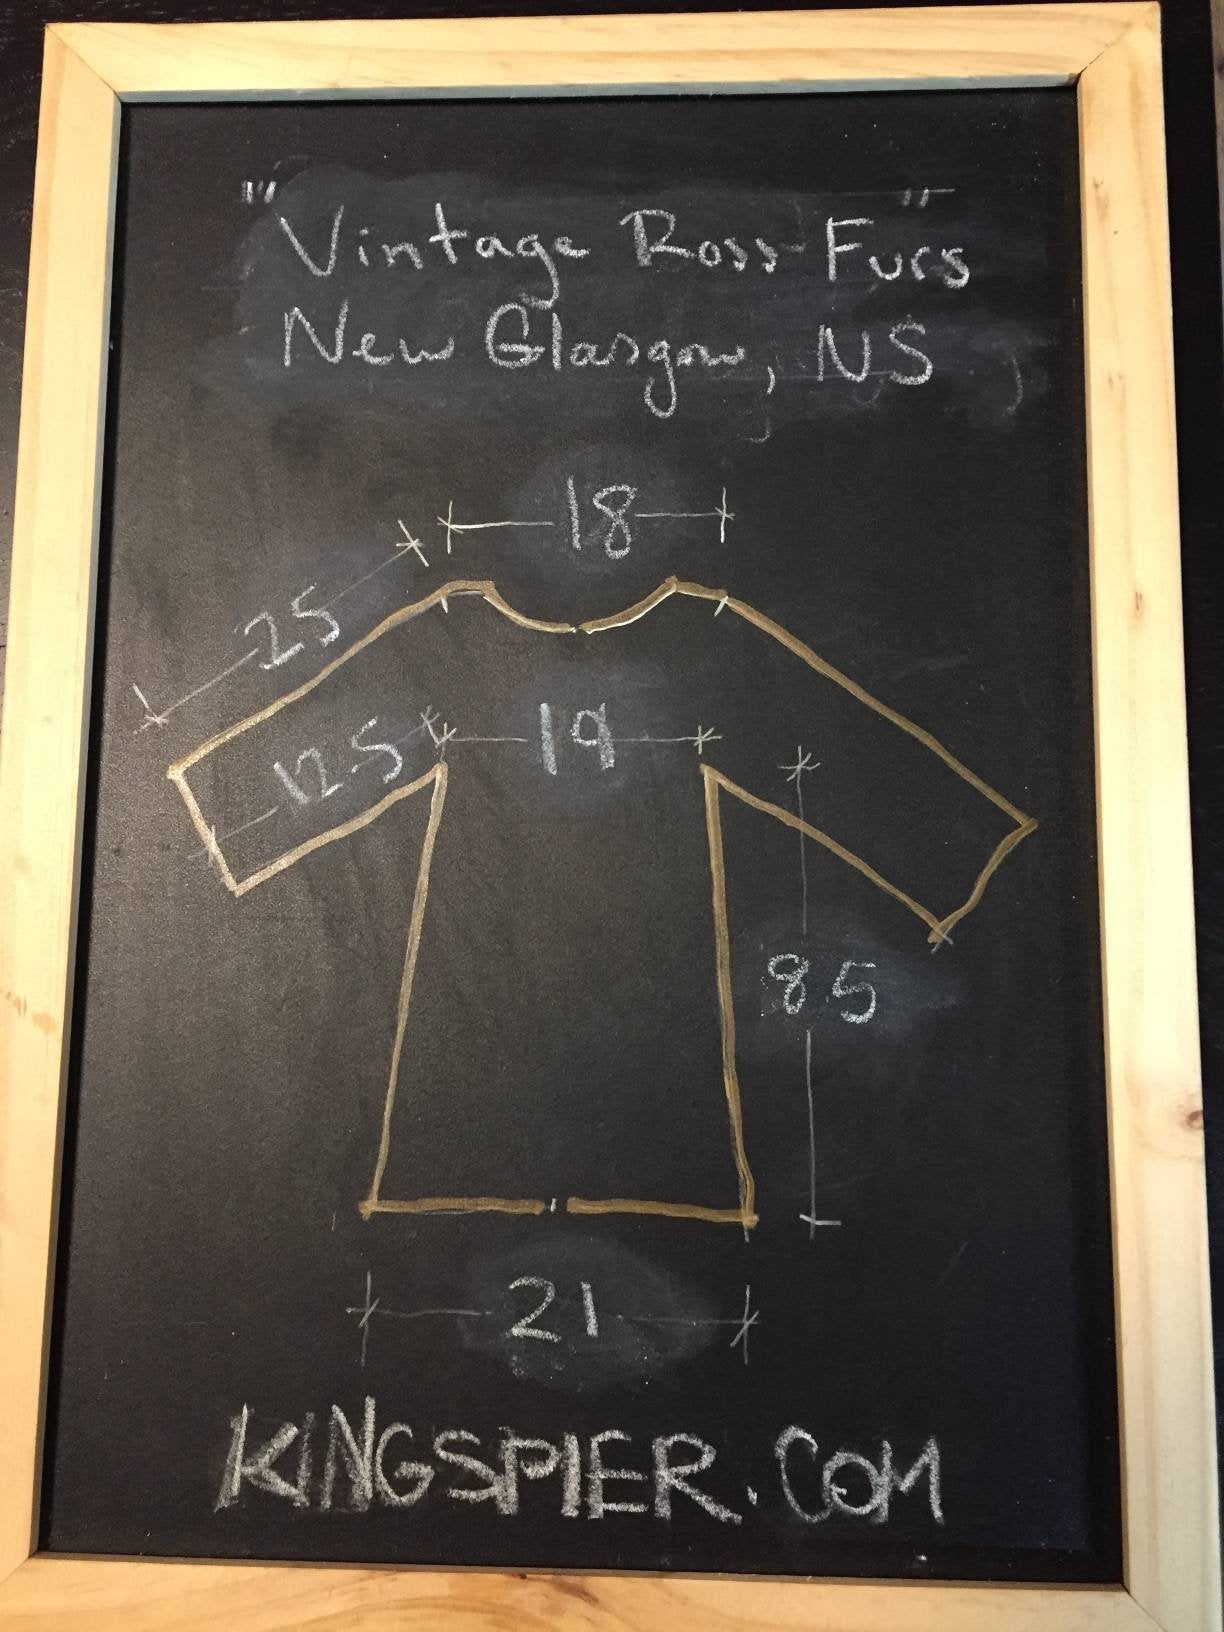 "Vintage Ross Furs"
New Glasgow, NS
18
25
19
12.5
8.5
21
KINGSPIER.COM